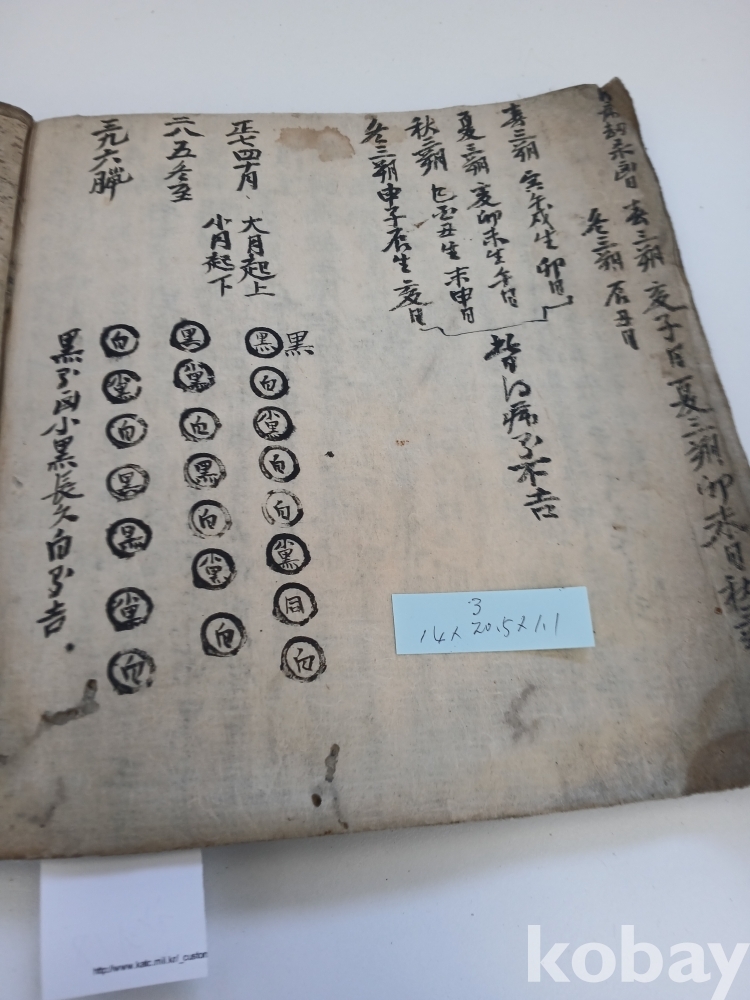 春三朔 亥子日 夏三朔 卯未日 秋三
冬三朔 辰丑日
春三朔 寅午戌生 卯日
夏三朔 亥卯未生 午日
秋三朔 巳酉丑生 未申日
冬三朔 申子辰生 亥日
皆得病多不吉
正七四十月 大月起上
小月起下
二八五冬至
三九六臘
黑 黑
白
小黑
白
白
小黑
同
白
黑
小黑
白
黑
白
小黑
白
白
小黑
白
黑
黑
小黑
白
黑多凶小黑長久白多吉.
3
14 x 20.5 x 1.1
http://www.katc.mil.kr/_custom
kobay